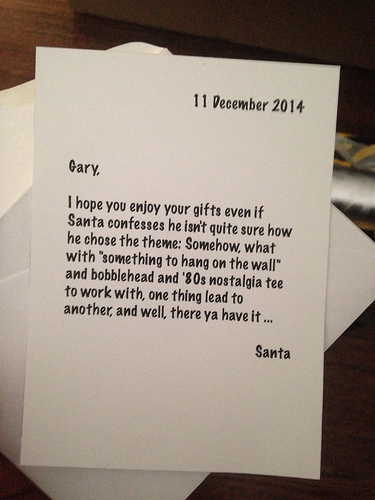 11 December 2014
Gary,
I hope you enjoy your gifts even if
Santa confesses he isn't quite sure how
he chose the theme: Somehow, what
with "something to hang on the wall"
and bobblehead and '80s nostalgia tee
to work with, one thing lead to
another, and well, there ya have it ...
Santa